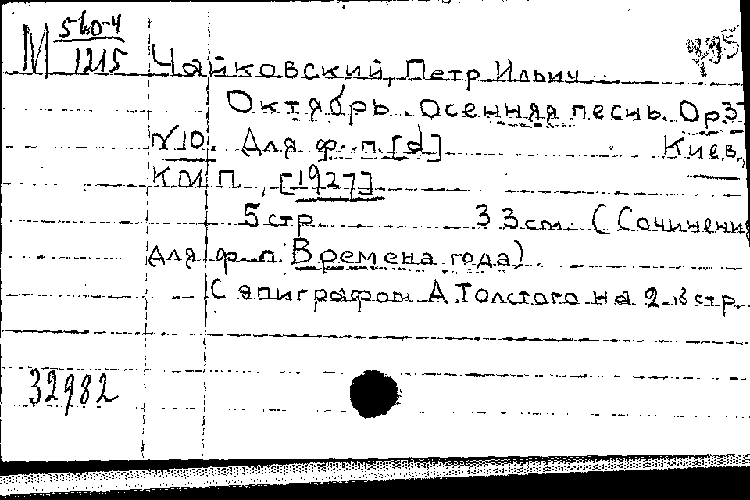 М 560-4
1215
Чайковский, Петр Ильич
Октябрь. Осенняя песнь. Op 37
№10. Для ф. п. [d] Киев,
КМП, [1927]
5 стр. 33 см. (Сочинени
для ф. п. Времена года).
С эпиграфом А. Толстого на 2-й стр.
32982